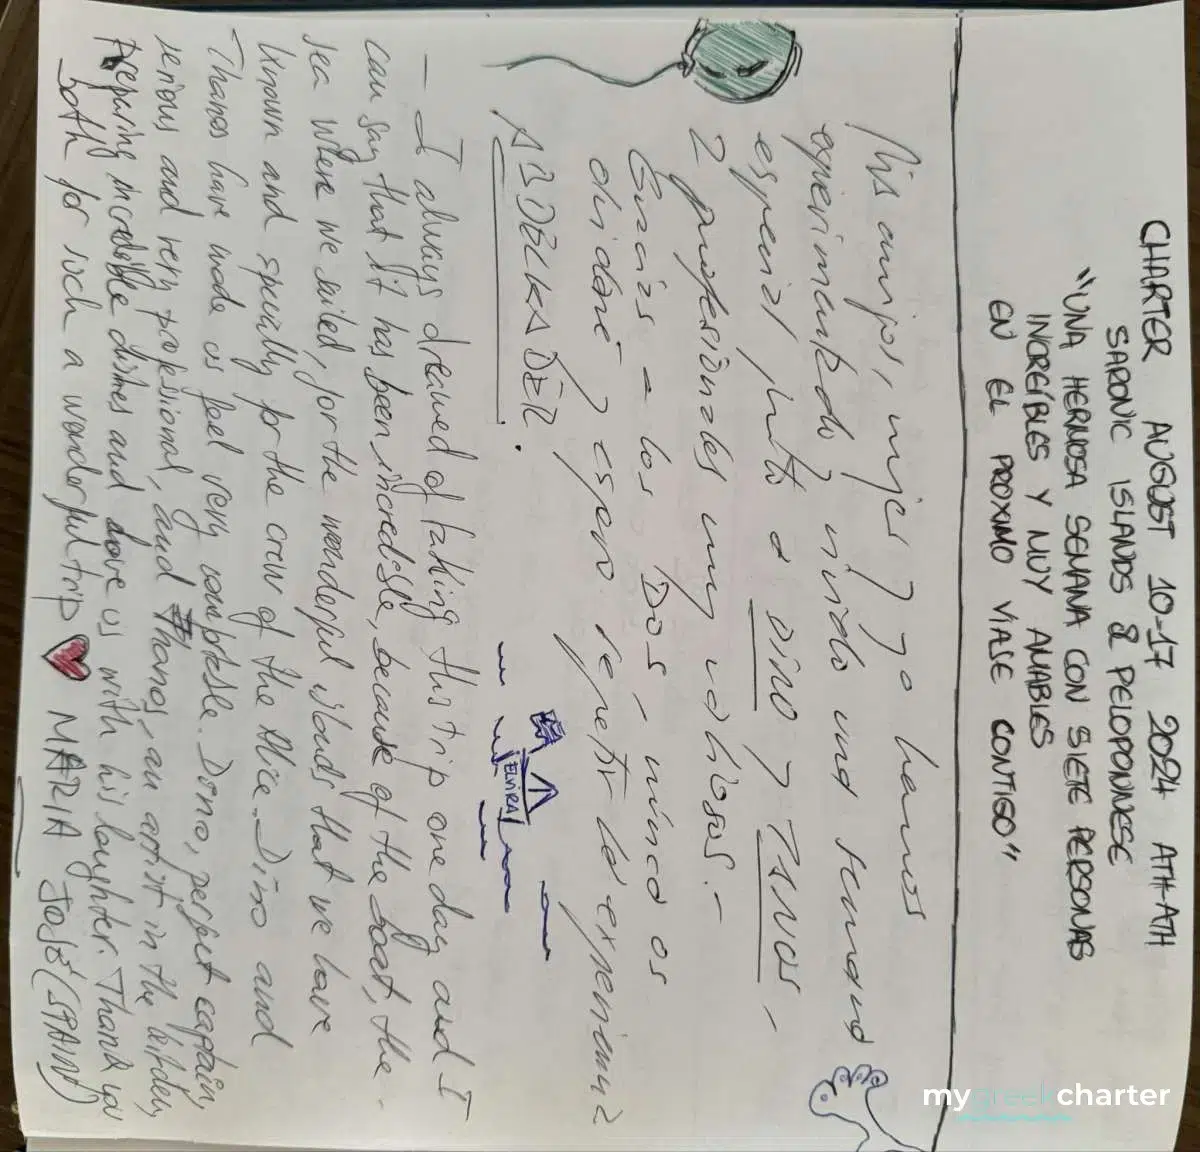 CHARTER AUGUST 10-17 2024 ATH-ATH
SARONIC ISLANDS & PELOPONNESE
"UNA HERMOSA SEMANA CON SIETE PERSONAS
INCREÍBLES Y MUY AMABLES
EN EL PROXIMO VIAJE CONTIGO"
Mis amigos, mujer y yo hemos
experimentado y vivido una semana
especial junto a DINO y TANOS,
2 profesionales muy valiosos.-
Gracias a los Dos, nunca os
olvidaré y espero repetir la experiencia
ABDELKADER.
ELVIRA
- I always dreamed of taking this trip one day and I
can say that it has been incredible, because of the boat, the
sea where we sailed, for the wonderful islands that we have
known and specially for the crew of the Alice. Dino and
Thanos have made us feel very comfortable. Dino, perfect captain,
serious and very professional, and Thanos, an artist in the kitchen,
preparing incredible dishes and love us with his laughter. Thank you
both for such a wonderful trip ♥ MARIA JOSÉ (SPAIN)
mygreekcharter